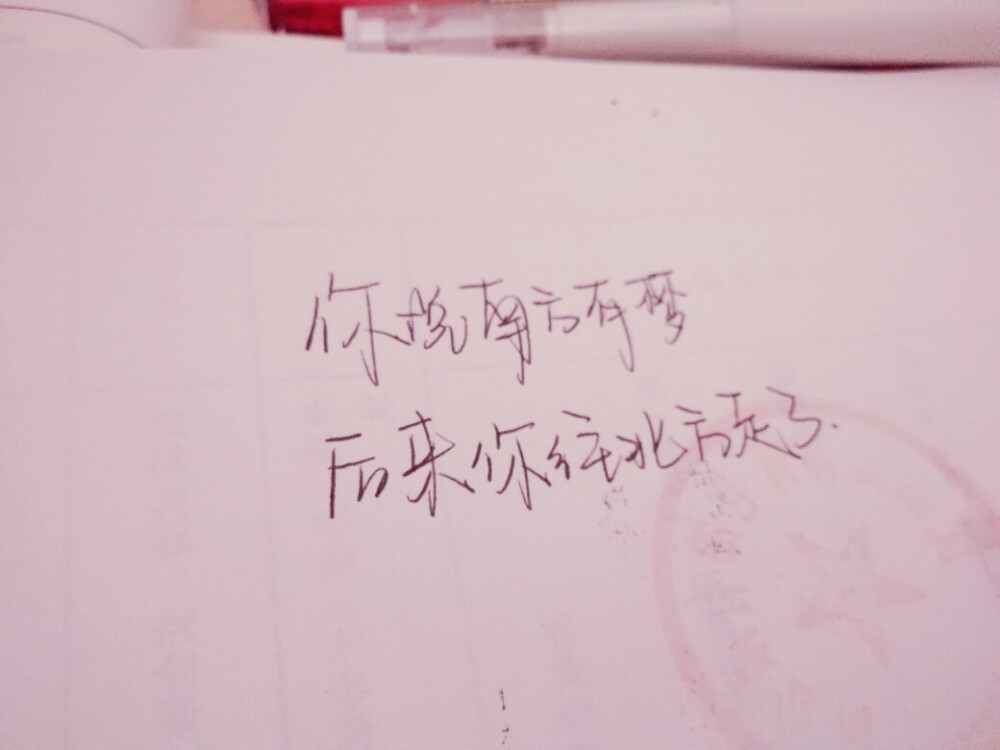 你说南方有梦
后来你往北方走了.